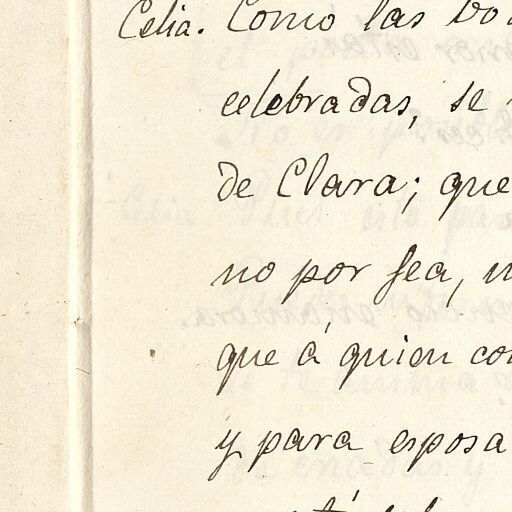 Celia. Como las
celebradas, se
de Clara; que
no por fea,
que á quien
y para esposa